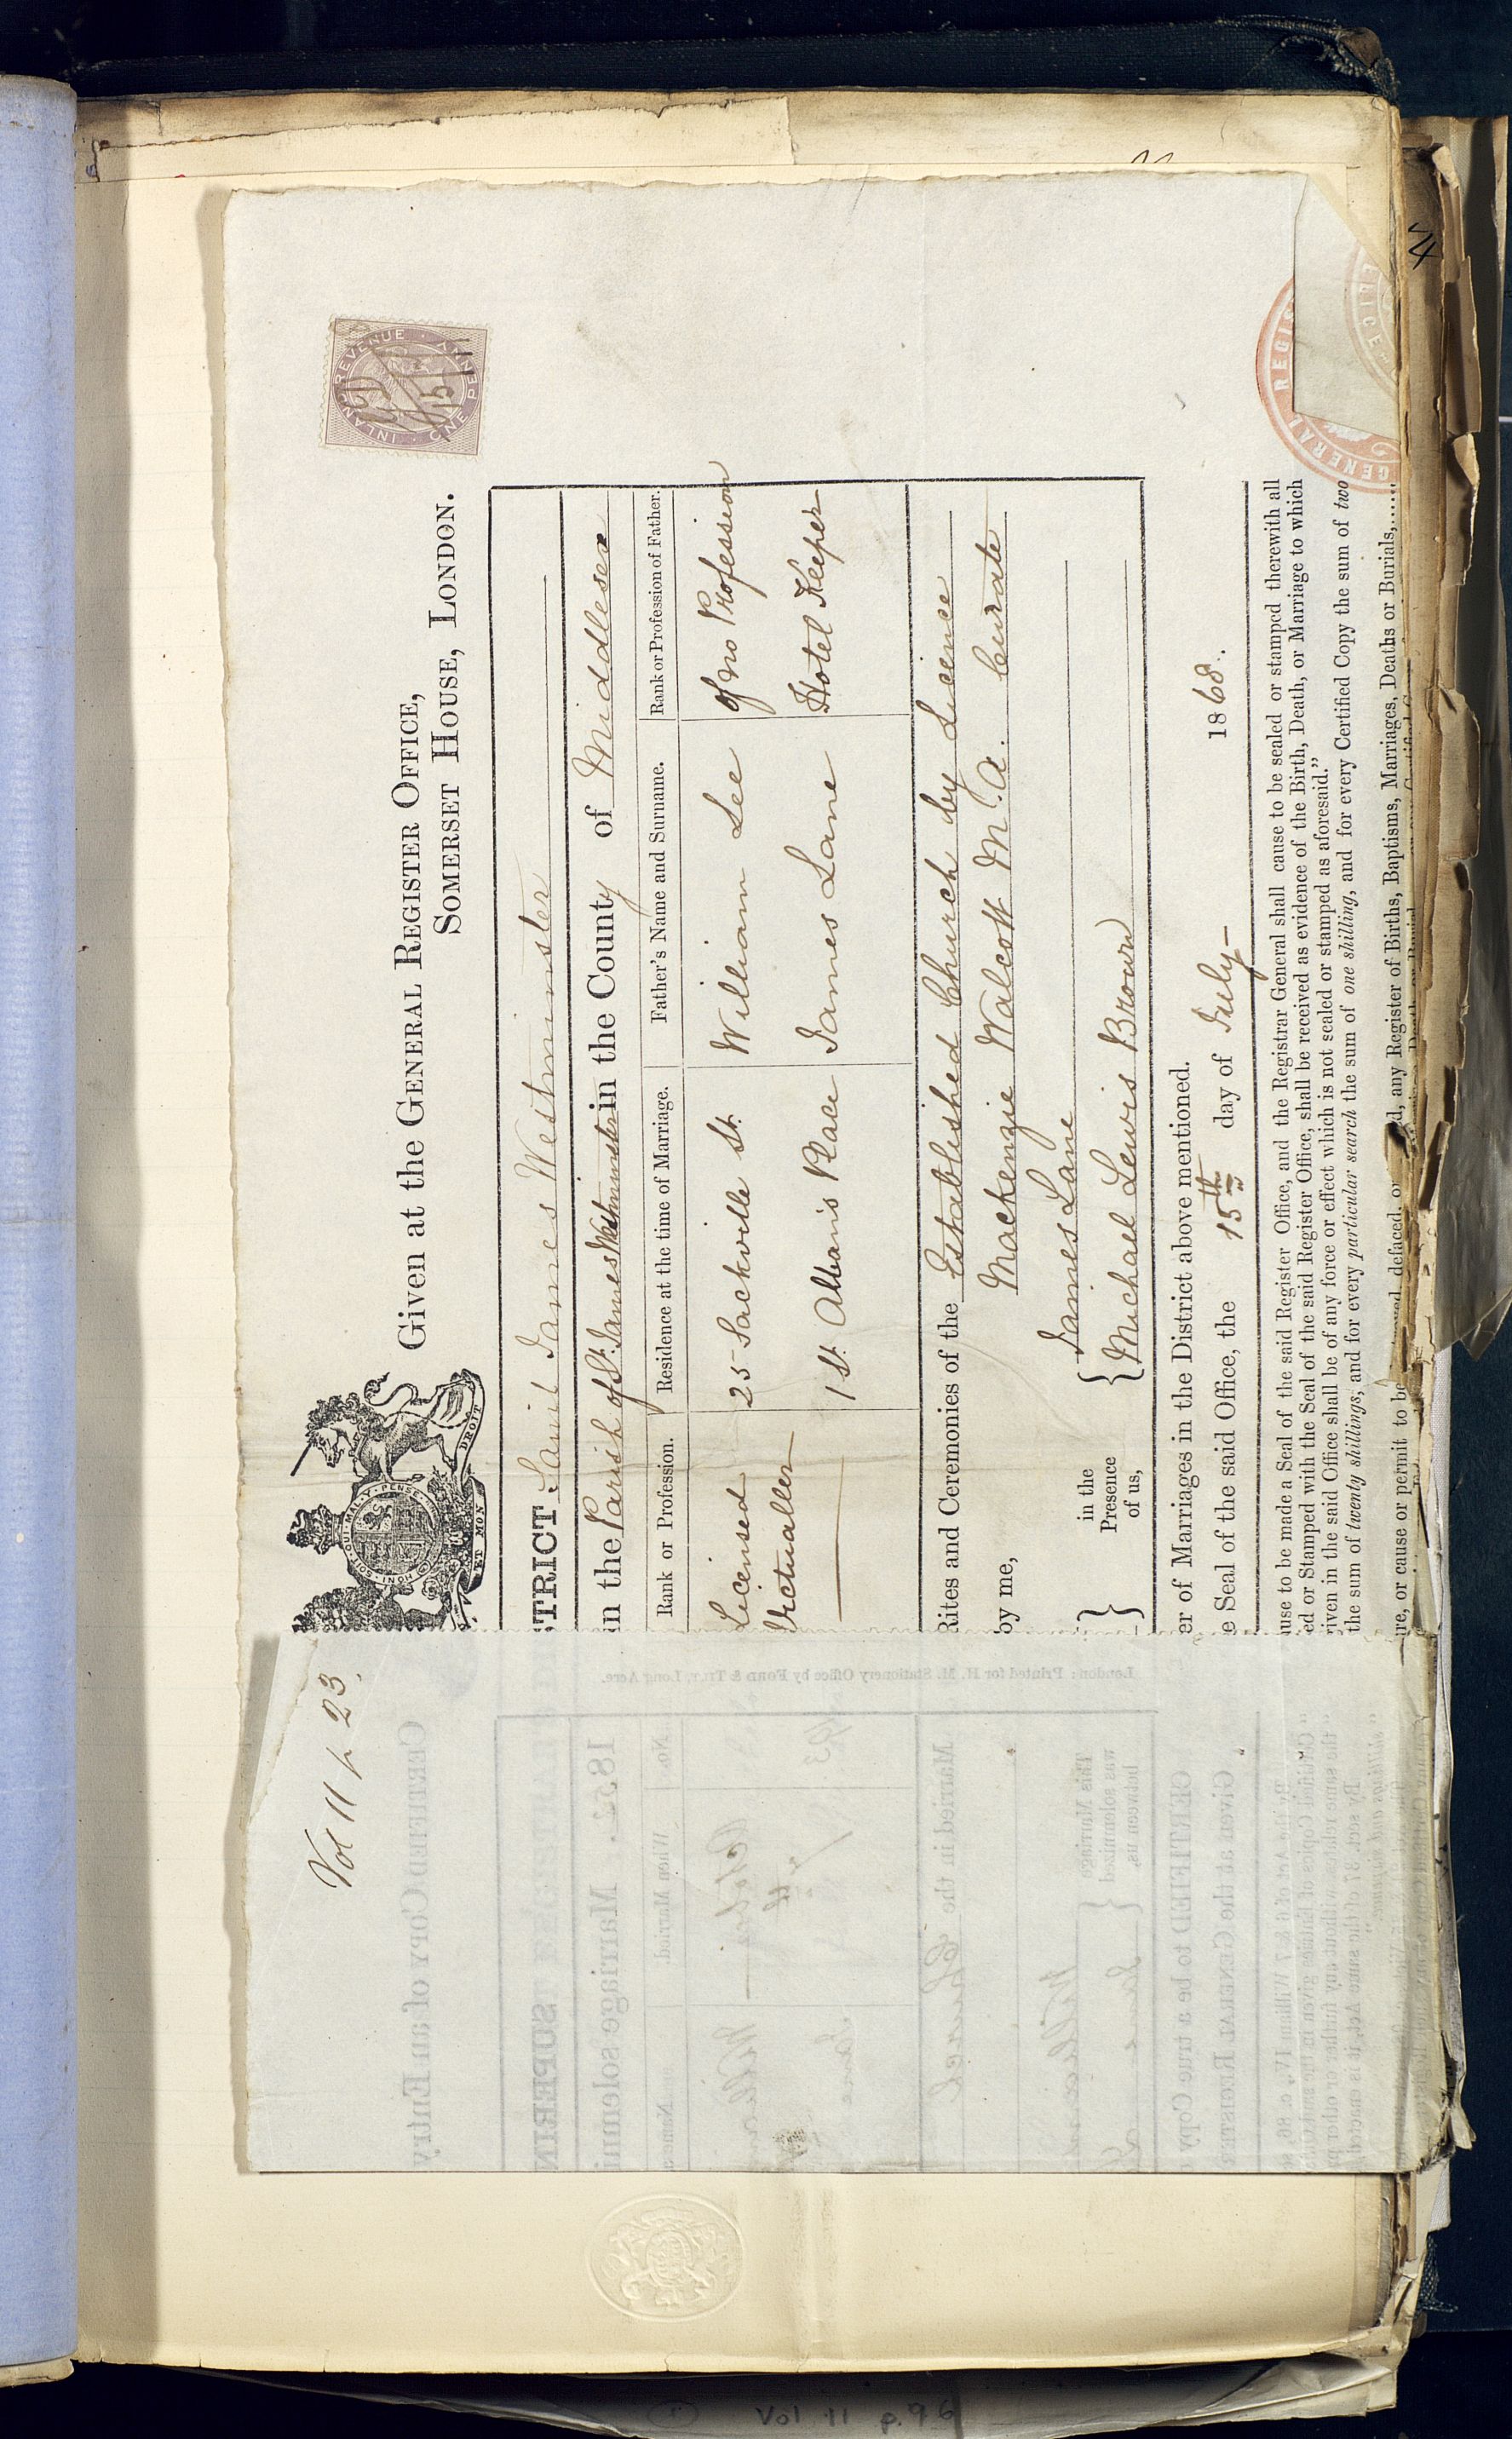 Vol 11 p 23.
INLAND REVENUE · ONE PENNY
Given at the GENERAL REGISTER OFFICE,
SOMERSET HOUSE, LONDON.
HONI · SOIT · QUI · MAL · Y · PENSE
ET MON DROIT
STRICT Saint James Westminster
in the Parish of St. James Westminster in the County of Middlesex
Rank or Profession. Residence at the time of Marriage. Father's Name and Surname. Rank or Profession of Father.
Licensed Victualler 25 Sackville St. William Lee of no Profession
1 St. Alban's Place James Lane Hotel Keeper
Rites and Ceremonies of the Established Church by Licence
by me, Mackenzie Walcott M.A. Curate
in the Presence of us, James Lane
Michael Lewis Brown
er of Marriages in the District above mentioned.
e Seal of the said Office, the 15th day of July 1868.
use to be made a Seal of the said Register Office, and the Registrar General shall cause to be sealed or stamped therewith all
ed or Stamped with the Seal of the said Register Office, shall be received as evidence of the Birth, Death, or Marriage to which
iven in the said Office shall be of any force or effect which is not sealed or stamped as aforesaid."
the sum of twenty shillings, and for every particular search the sum of one shilling, and for every Certified Copy the sum of two
re, or cause or permit to be defaced, or any Register of Births, Baptisms, Marriages, Deaths or Burials,
GENERAL REGIS
London: Printed for H. M. Stationery Office by FORD & TILT, Long Acre.
CERTIFIED COPY of an Entry
SUPERIN
1852. Marriage solemni
No. When Married. Name
Married in the Church
This Marriage was solemnized between us,
CERTIFIED to be a true Copy
Given at the GENERAL REGISTER
Vol 11 p. 96